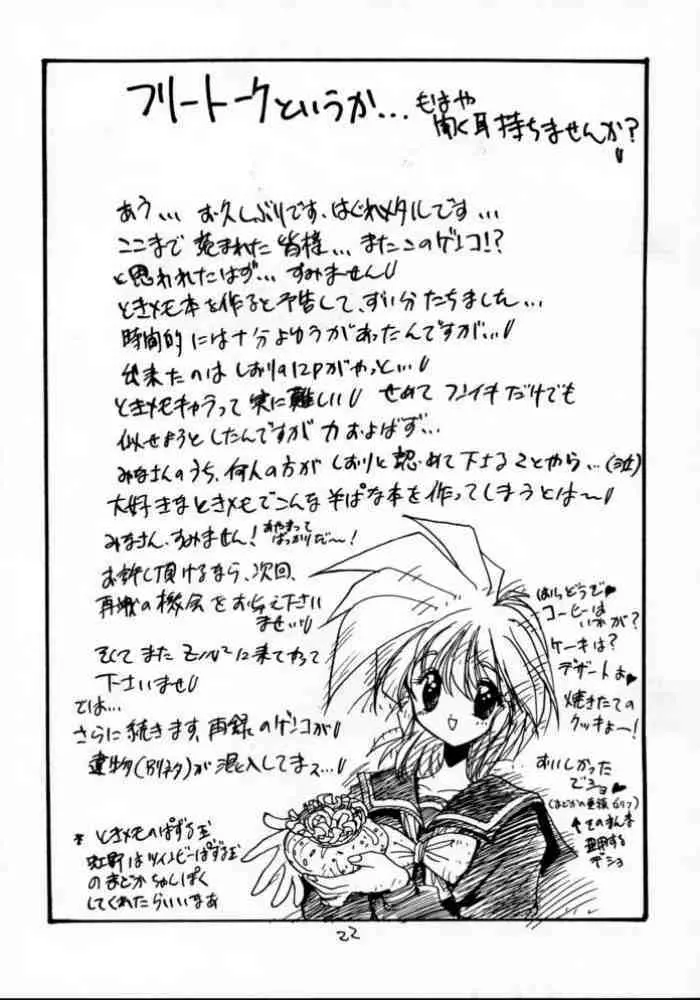 フリートークというか...もはや
聞く耳持ちませんか?
あう... お久しぶりです、はぐれメタルです...
ここまで 読まれた 皆様... またこのゲンコ!?
と思われたはず... すみません
ときメモ本を作ると予告して、ずい分たちました...
時間的には十分よゆうがあったんですが...
出来たのは しおりの12Pがやっと...
ときメモキャラって 実に難しい せめて フンイキだけでも
似せようとしたんですが 力およばず...
みなさんのうち、何人の方が しおりと認めて下さることやら...(泣)
大好きなときメモでこんな そまつな本を作ってしまうとは〜
みなさん、すみません! あやまって
ばっかりだ〜!
お許し頂けるなら、次回、
再戦の機会を お与え下さい
ませ
そしてまた に来てやって
下さいませ
では...
さらに続きます、再録のゲンコが
遺物(Bネタ)が 混入してます...
* ときメモのぱずる玉
虹野はツインビーぱずる玉
の まどか ちゅしぱく
してくれたらいいなあ
はい どうぞ♥
コーヒーは
いかが?
ケーキは?
デザートよ♥
焼きたての
クッキーよー!
おいしかった
でショ♥
(まどかの連鎖セリフ)
↑そのまんま
登用する
でショ
22